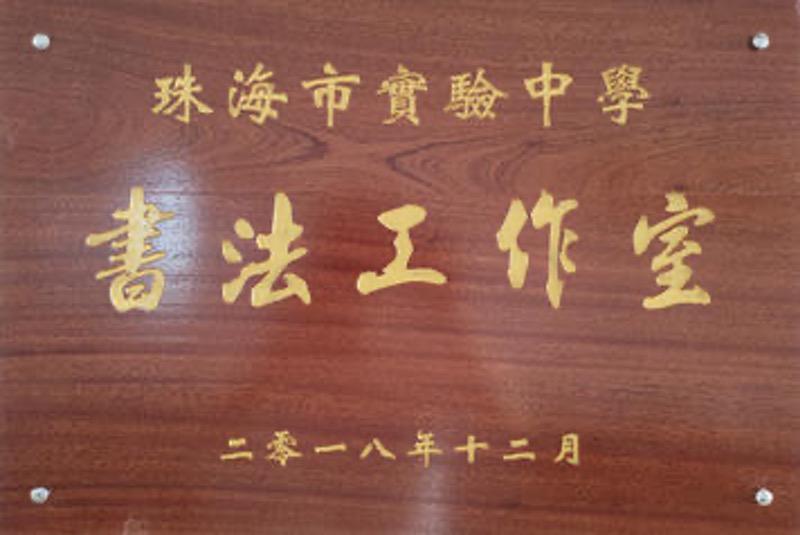 珠海市實驗中學
書法工作室
二零一八年十二月